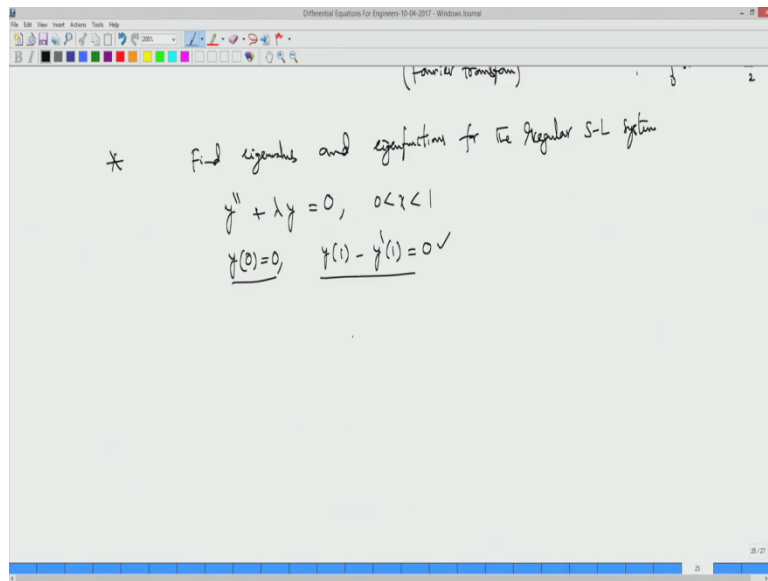 Differential Equations For Engineers-10-04-2017 - Windows Journal
File Edit View Insert Actions Tools Help
200%
B I
(Fourier Transform)
2
* Find eigenvalues and eigenfunctions for the Regular S-L System
y'' + λy = 0, 0<x<1
y(0)=0, y(1) - y'(1) = 0 ✓
25 / 27
25